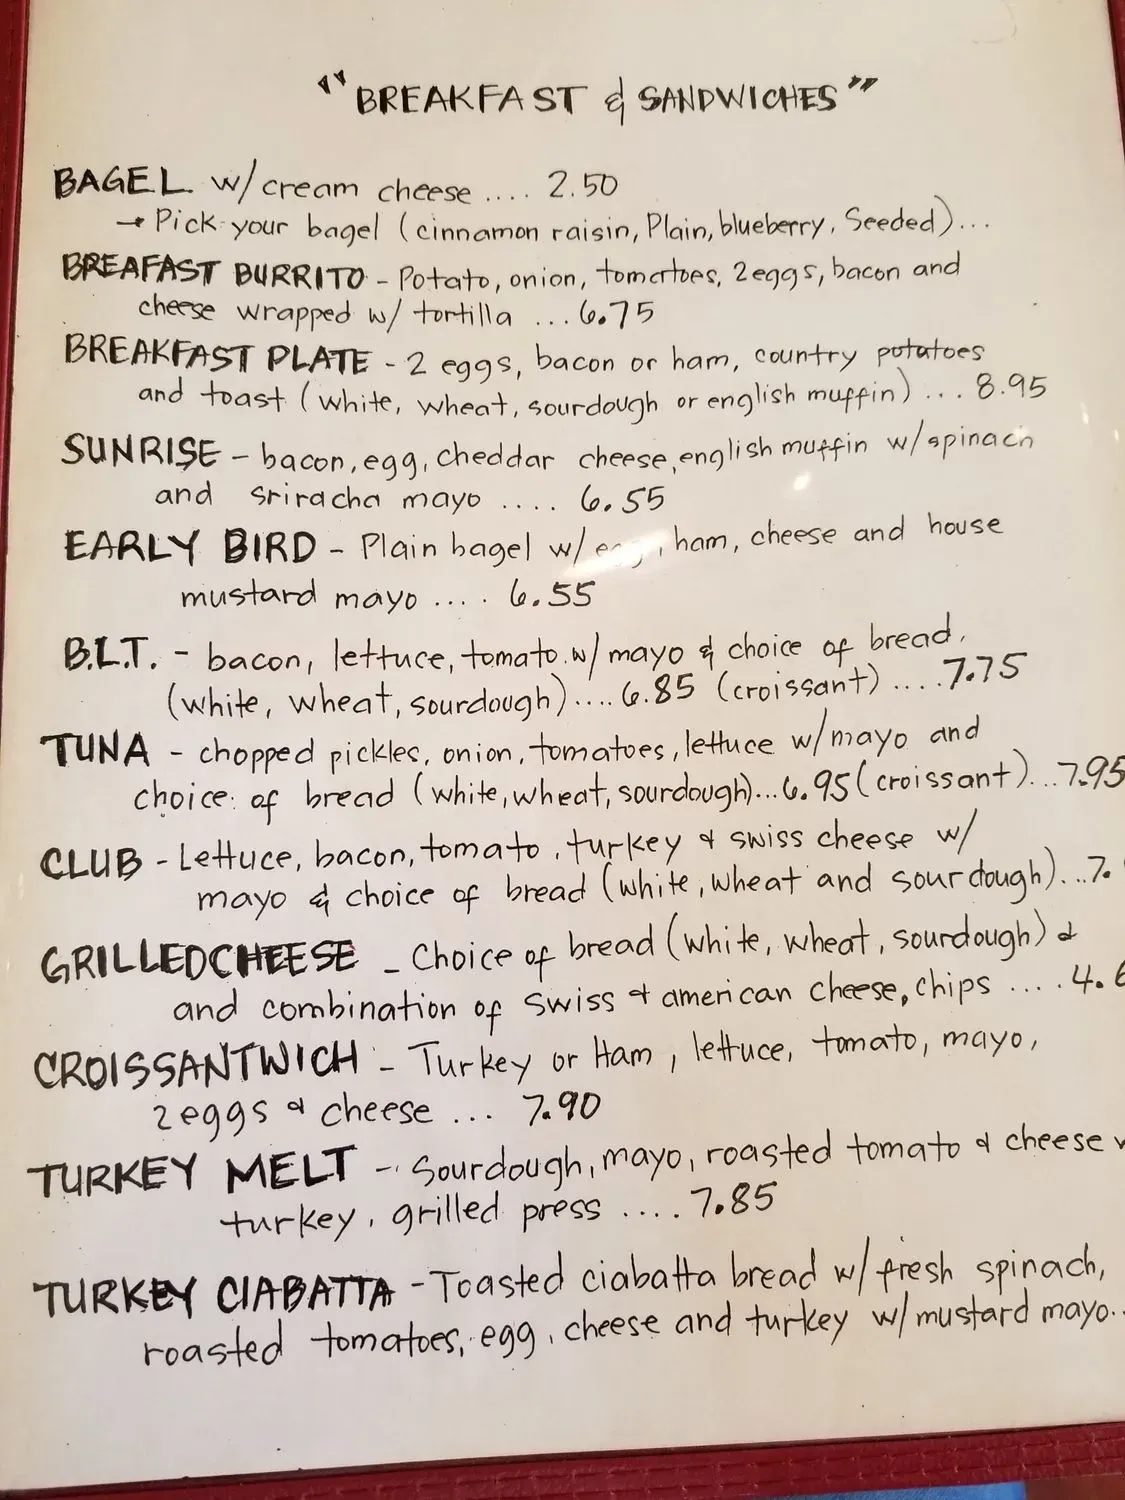 "BREAKFAST & SANDWICHES"
BAGEL w/cream cheese .... 2.50
→ Pick your bagel (cinnamon raisin, Plain, blueberry, Seeded)...
BREAFAST BURRITO - Potato, onion, tomatoes, 2eggs, bacon and
cheese wrapped w/ tortilla ...6.75
BREAKFAST PLATE - 2 eggs, bacon or ham, country potatoes
and toast (white, wheat, sourdough or english muffin)... 8.95
SUNRISE - bacon, egg, cheddar cheese, english muffin w/spinach
and sriracha mayo .... 6.55
EARLY BIRD - Plain bagel w/ ham, cheese and house
mustard mayo .... 6.55
B.L.T. - bacon, lettuce, tomato w/ mayo & choice of bread.
(white, wheat, sourdough)....6.85 (croissant)....7.75
TUNA - chopped pickles, onion, tomatoes, lettuce w/mayo and
choice of bread (white, wheat, sourdough)...6.95 (croissant)...7.95
CLUB - Lettuce, bacon, tomato, turkey & swiss cheese w/
mayo & choice of bread (white, wheat and sourdough)...7.
GRILLEDCHEESE - Choice of bread (white, wheat, sourdough) &
and combination of swiss & american cheese, chips ....4.
CROISSANTWICH - Turkey or Ham, lettuce, tomato, mayo,
2eggs & cheese ... 7.90
TURKEY MELT - Sourdough, mayo, roasted tomato & cheese
turkey, grilled press ....7.85
TURKEY CIABATTA - Toasted ciabatta bread w/ fresh spinach,
roasted tomatoes, egg, cheese and turkey w/ mustard mayo..